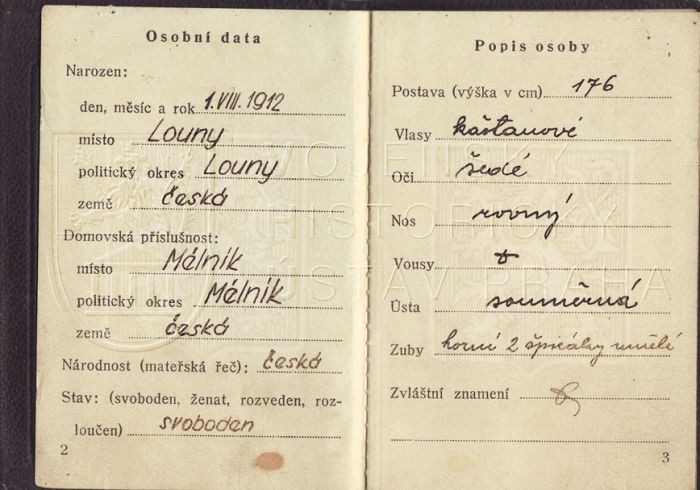 Osobní data
Narozen:
den, měsíc a rok 1. VIII. 1912
místo Louny
politický okres Louny
země česká
Domovská příslušnost:
místo Mělník
politický okres Mělník
země česká
Národnost (mateřská řeč): česká
Stav: (svoboden, ženat, rozveden, roz-
loučen) svoboden
2
Popis osoby
Postava (výška v cm) 176
Vlasy kaštanové
Oči šedé
Nos rovný
Vousy
Ústa souměrná
Zuby horní 2 špičáky umělé
Zvláštní znamení
3
VOJENSKÝ
HISTORICKÝ
ÚSTAV PRAHA